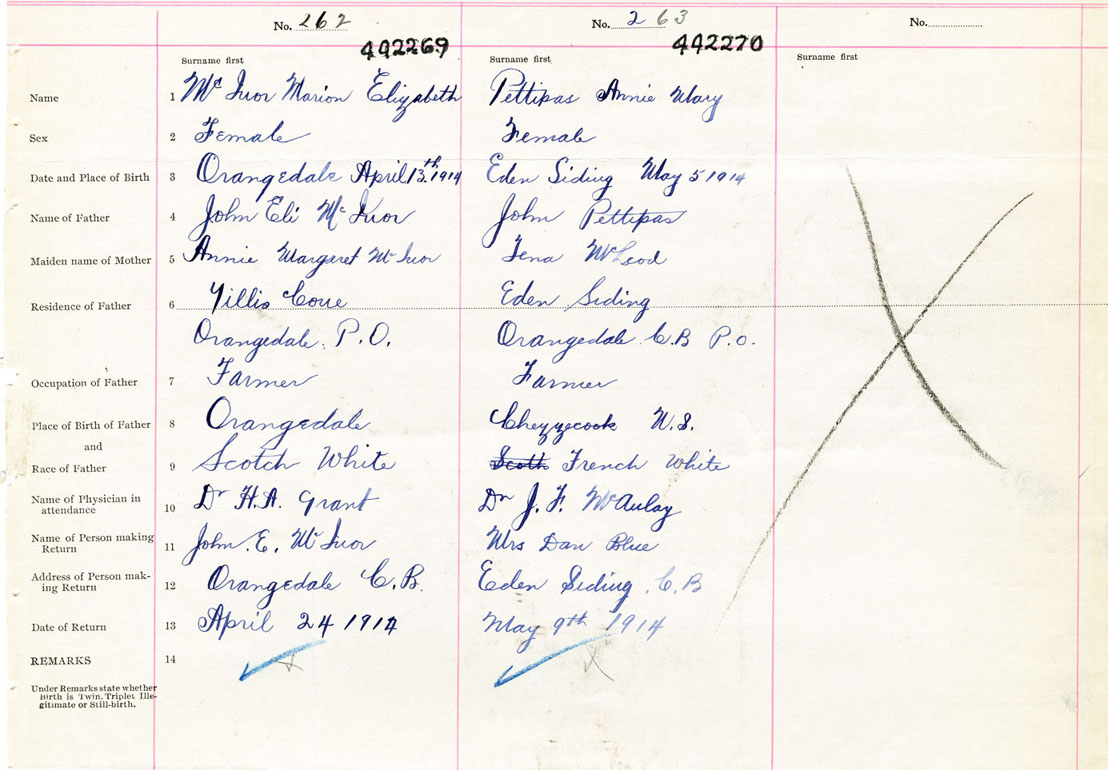 No. 262 No. 263 No.
442269 442270
Surname first Surname first Surname first
Name 1 McIvor Marion Elizabeth Pettipas Annie Mary
Sex 2 Female Female
Date and Place of Birth 3 Orangedale April 13th 1914 Eden Siding May 5 1914
Name of Father 4 John Eli McIvor John Pettipas
Maiden name of Mother 5 Annie Margaret McIvor Tena McLeod
Residence of Father 6 Gillis Cove Eden Siding
Orangedale. P.O. Orangedale C.B P.O.
Occupation of Father 7 Farmer Farmer
Place of Birth of Father 8 Orangedale Chezzecook N.S.
and
Race of Father 9 Scotch White Scoth French White
Name of Physician in
attendance 10 Dr H.A. Grant Dr J. F. McAulay
Name of Person making
Return 11 John. E. McIvor Mrs Dan Blue
Address of Person mak-
ing Return 12 Orangedale C.B. Eden Siding. C.B
Date of Return 13 April 24 1914 May 9th 1914
REMARKS 14
Under Remarks state whether
Birth is Twin. Triplet Ille-
gitimate or Still-birth.